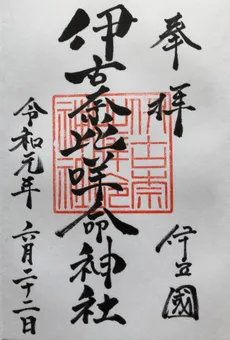 奉拝
伊豆國
伊古奈比咩命神社
令和元年
六月二十二日